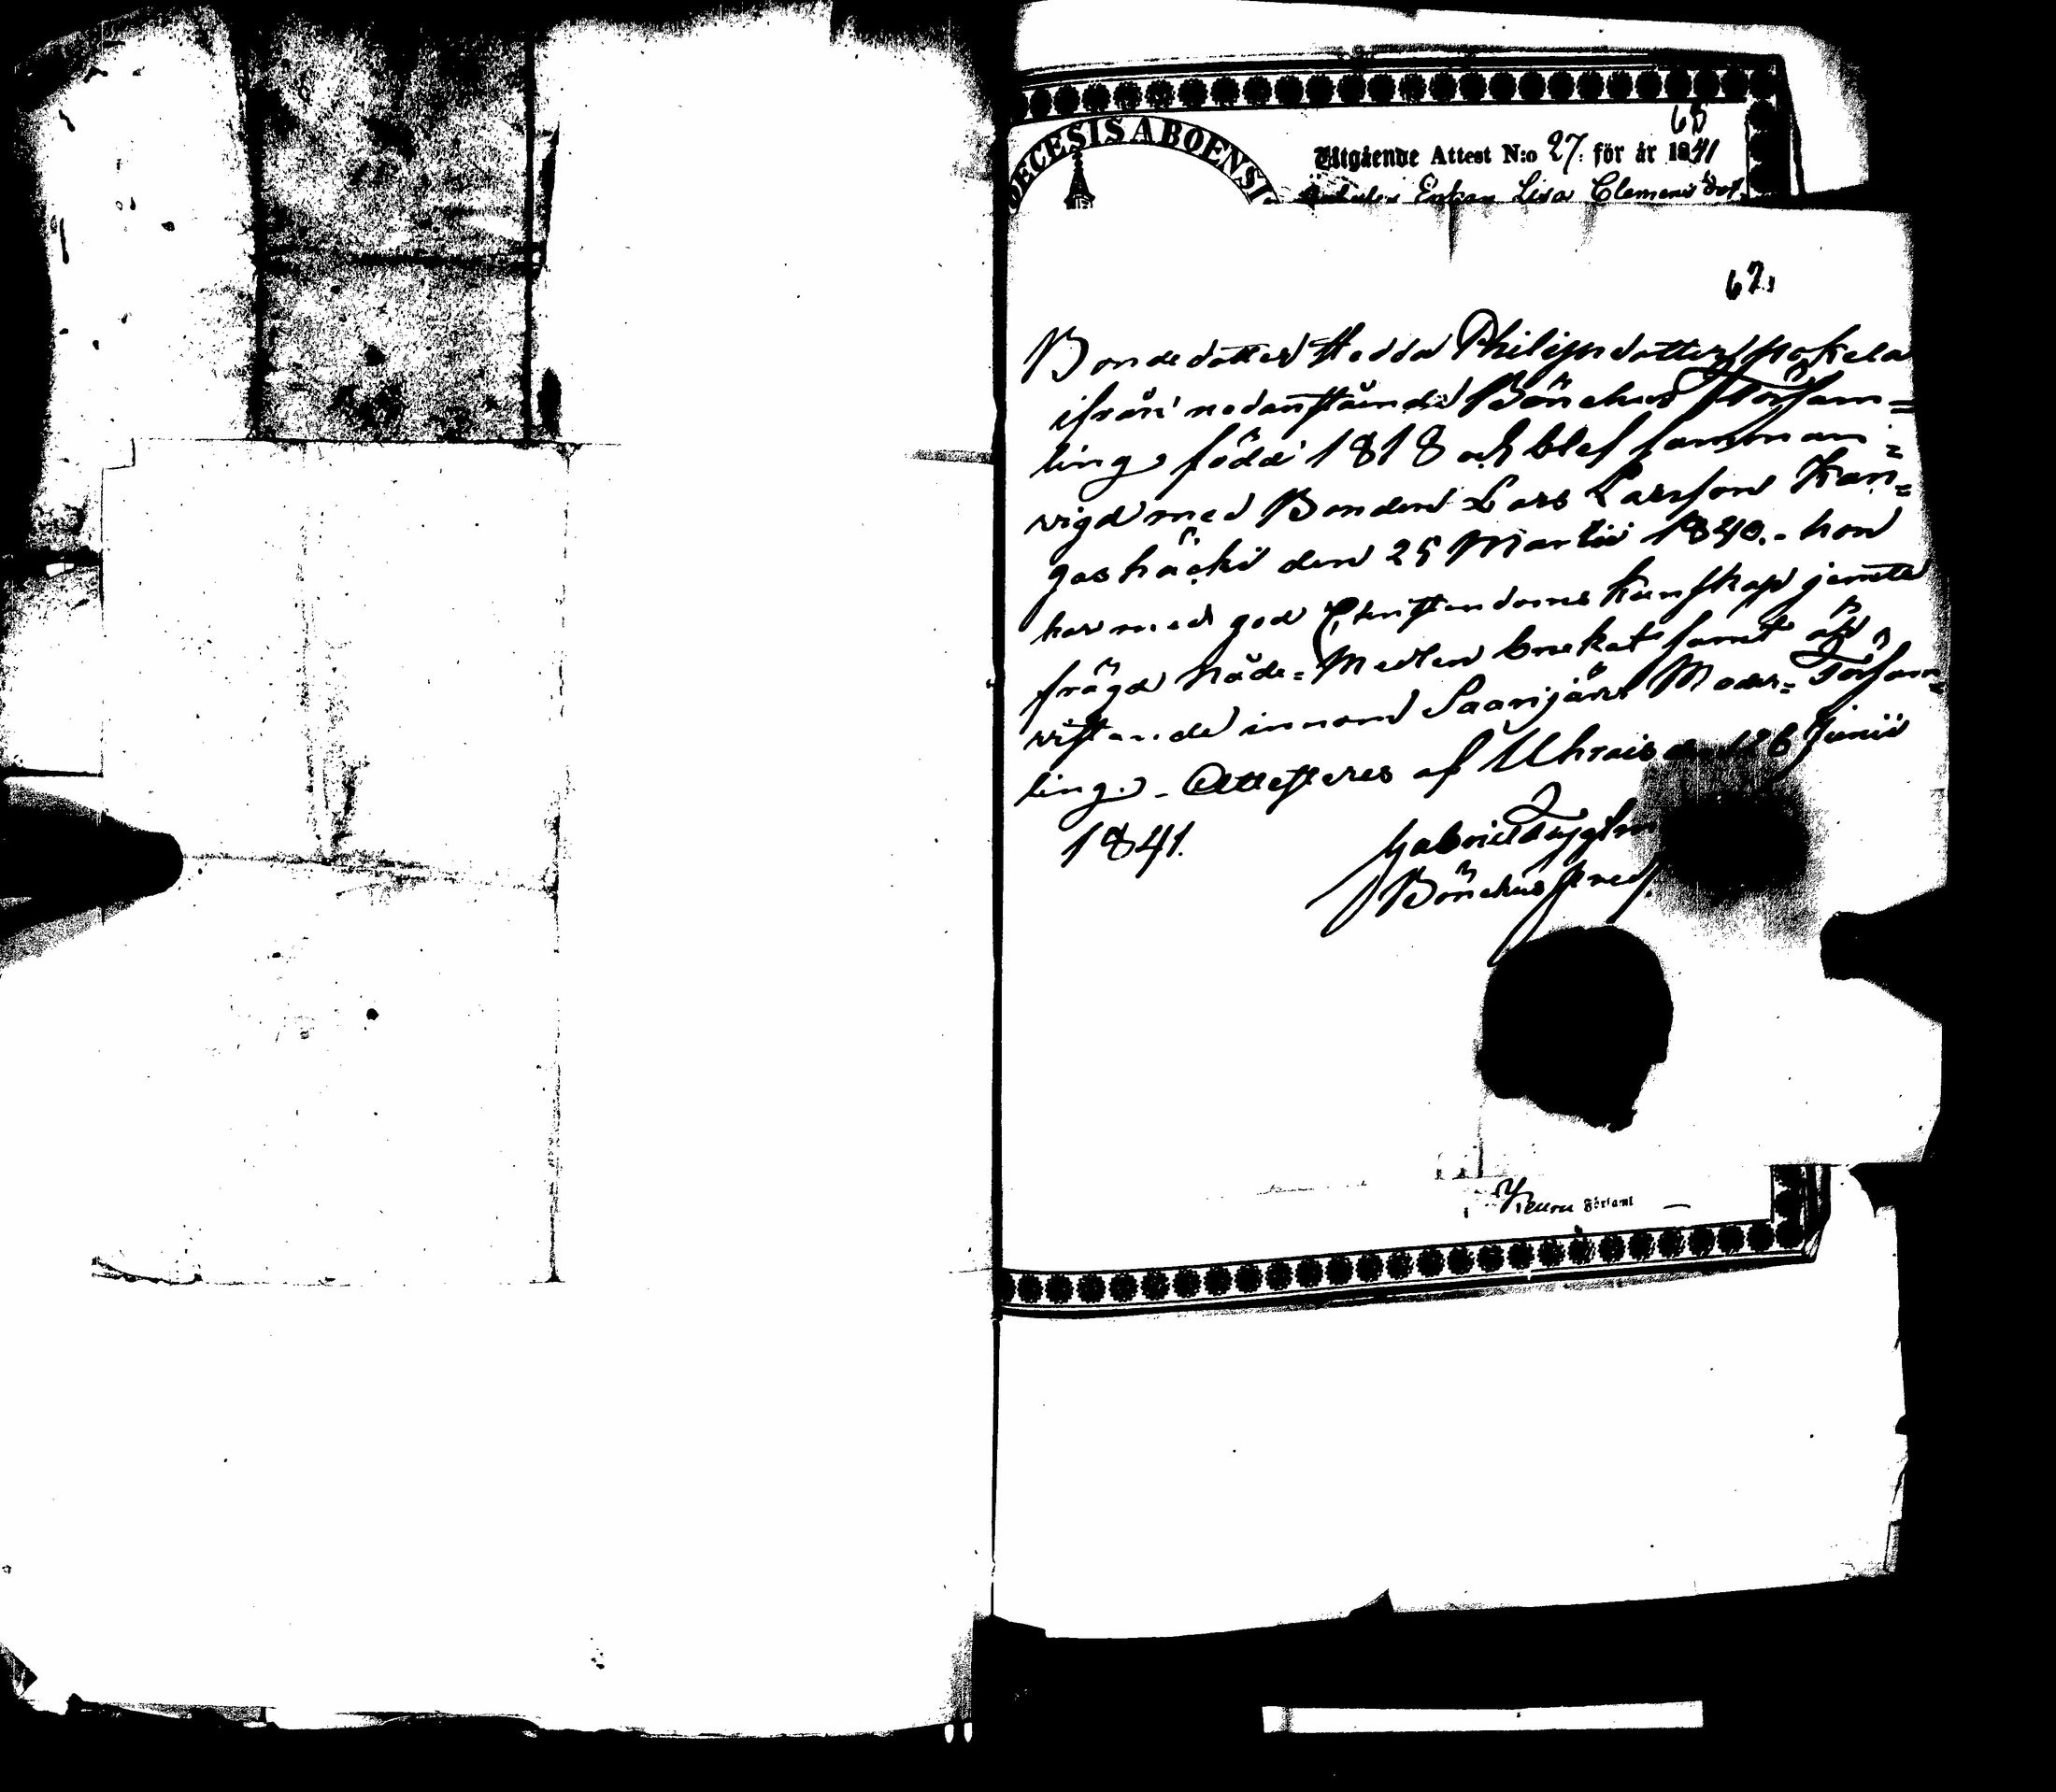 68
DECESIS ABOENSI
Utgående Attest N:o 27. för år 1841
Enkan Lisa Clemens dot.
67.
Bondedotter Hedda Philipsdotter
ifrån nedanstående Bönehus Försam=
ling, född 1818 och blef samman=
vigd med Bonden Lars Larsson Kan=
gashäcki den 25 Martii 1840. - hon
har med god Christendoms kunskap jemte
frägd Nåde=Medlen brukat samt
vistande innom Saarijärvi Moder=Försam=
ling. - Attesteres af Uhrais den 26 Junii
1841.
Gabriel
Bönehus Pred.
Keuru Församl